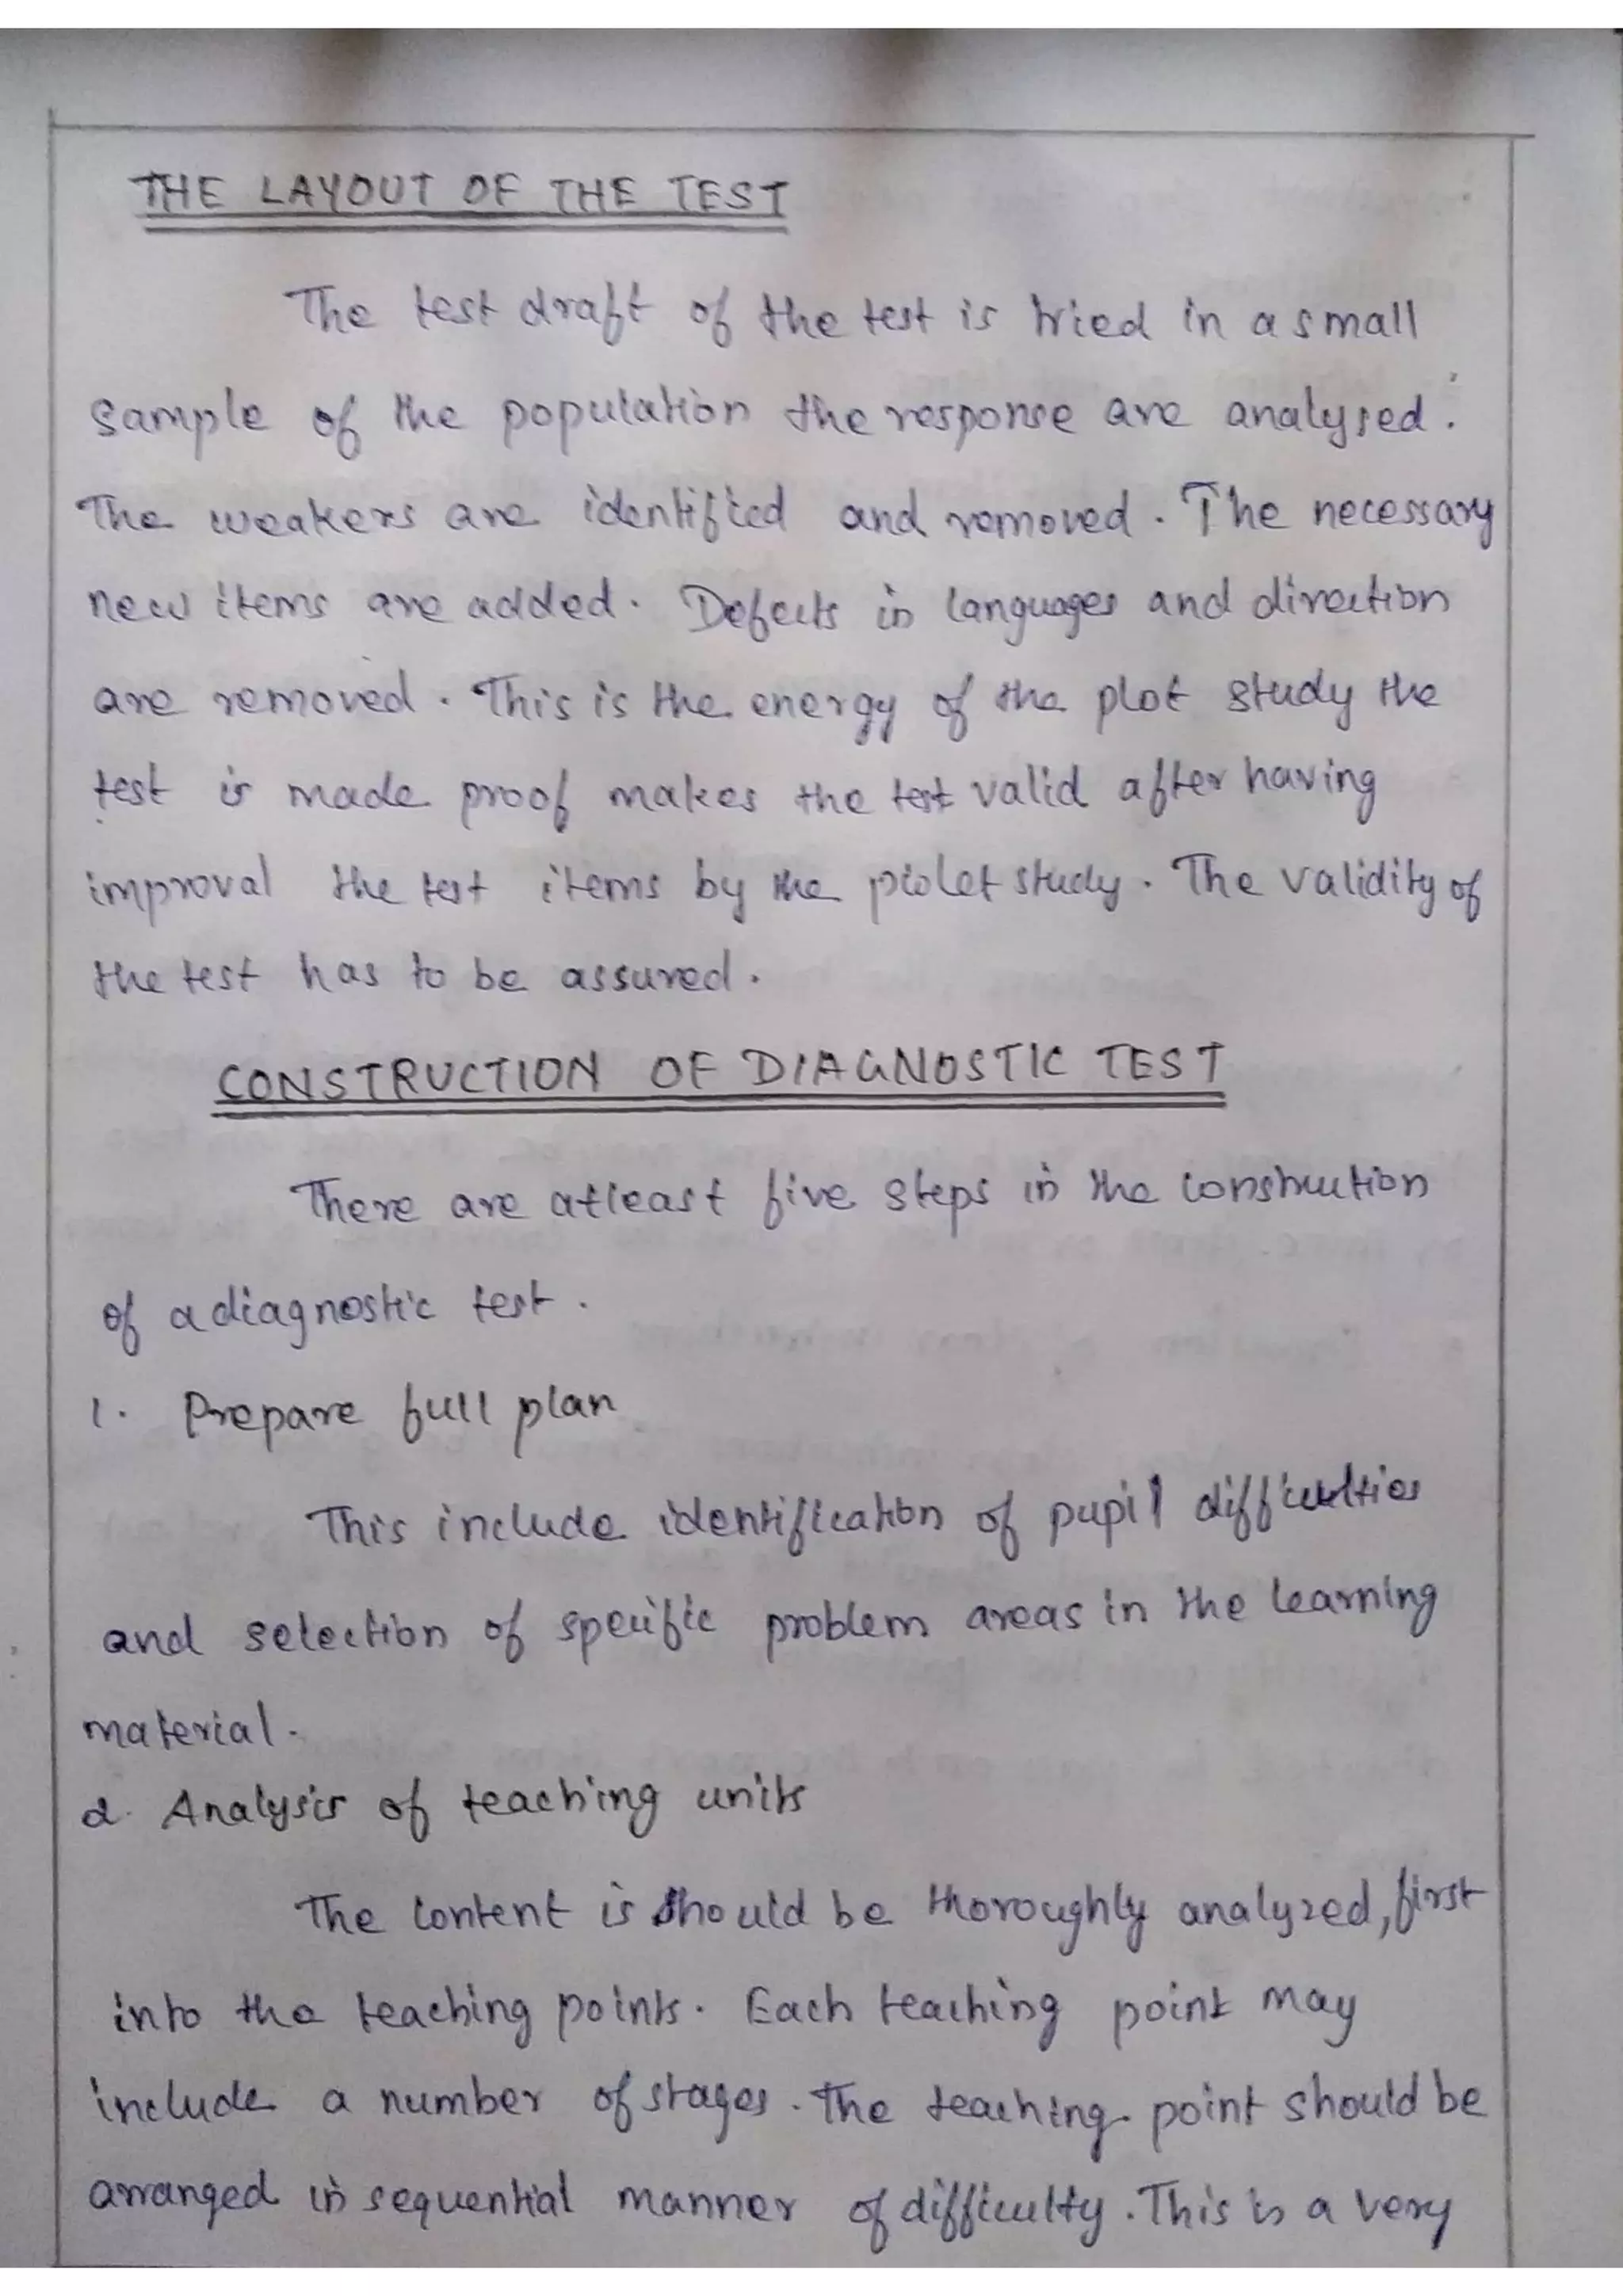 THE LAYOUT OF THE TEST
The test draft of the test is tried in a small
sample of the population the response are analysed.
The weakers are identified and removed. The necessary
new items are added. Defects in languages and direction
are removed. This is the energy of the plot study the
test is made proof makes the test valid after having
improval the test items by the piolet study. The validity of
the test has to be assured.
CONSTRUCTION OF DIAGNOSTIC TEST
There are atleast five steps in the construction
of a diagnostic test.
1. Prepare full plan
This include identification of pupil difficulties
and selection of specific problem areas in the learning
material.
2. Analysis of teaching units
The content is should be thoroughly analyzed, first
into the teaching points. Each teaching point may
include a number of stages. The teaching point should be
arranged in sequential manner of difficulty. This is a very